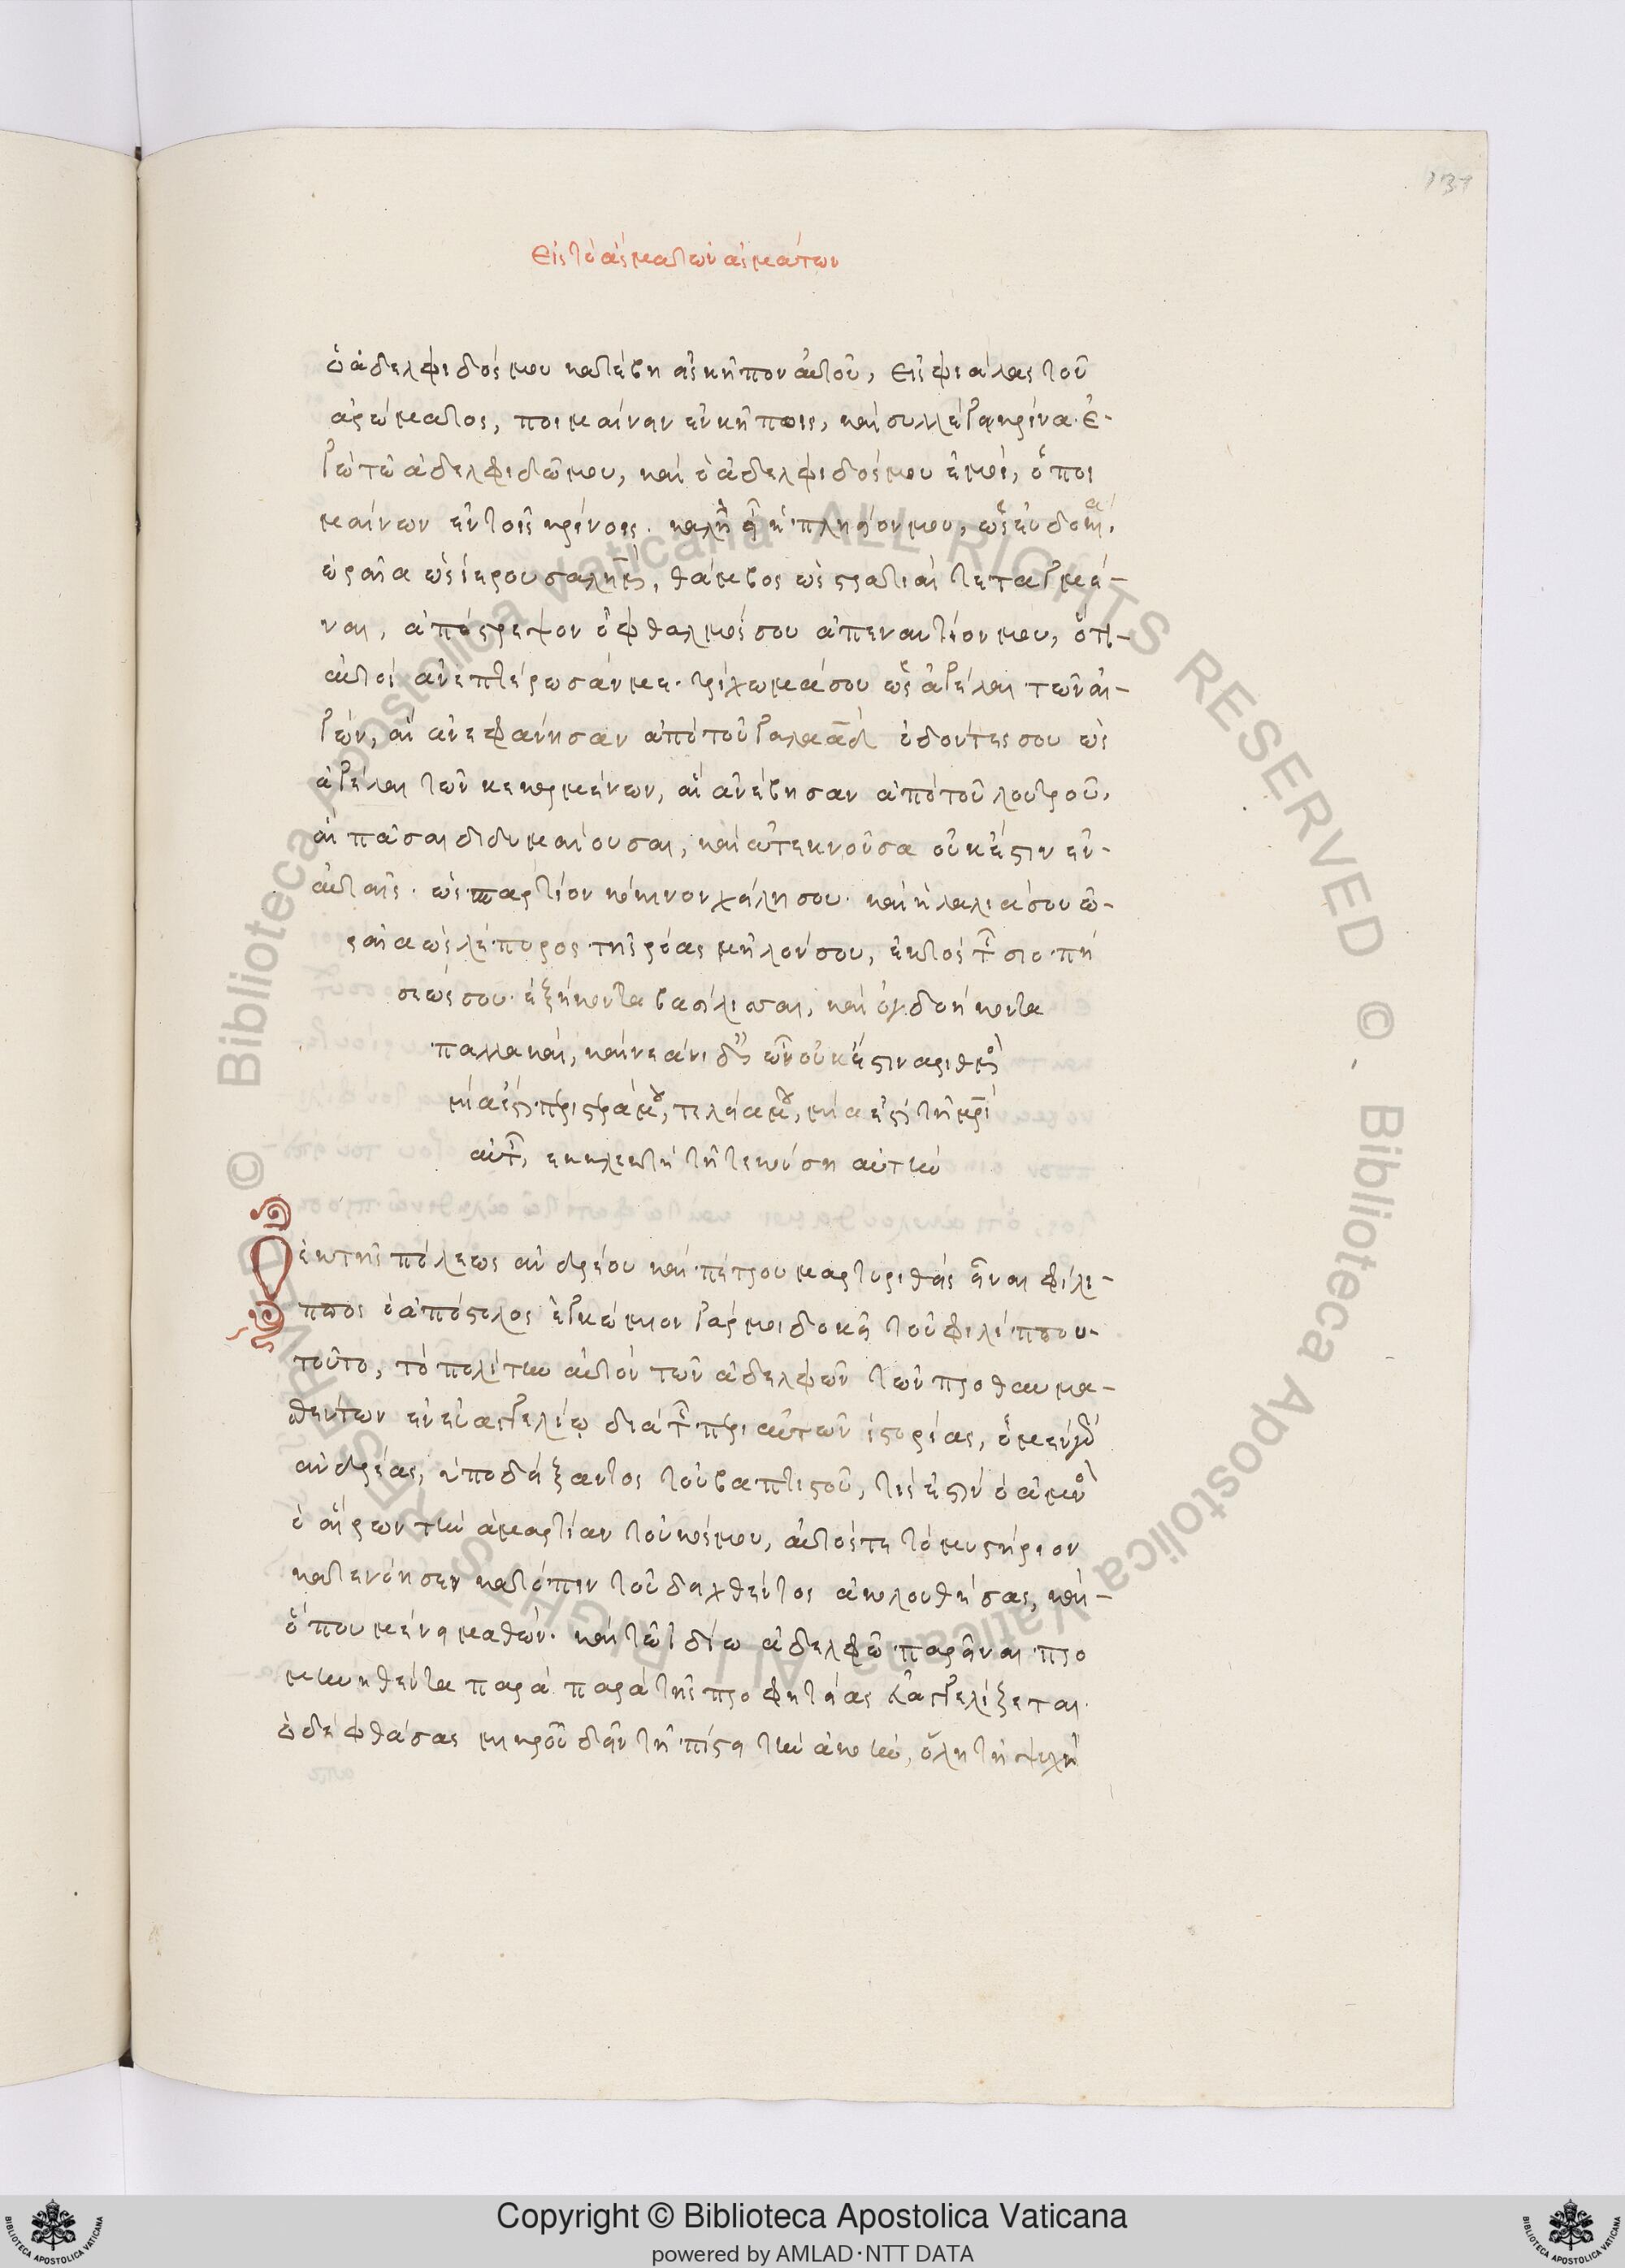 137
Εἰς τὸ ᾆσμα τῶν ᾀσμάτων
ὁ ἀδελφιδός μου κατέβη εἰς κῆπον αὐτοῦ, εἰς φιάλας τοῦ
ἀρώματος, ποιμαίνειν ἐν κήποις, καὶ συλλέγειν κρίνα. ἐ-
γὼ τῷ ἀδελφιδῷ μου, καὶ ὁ ἀδελφιδός μου ἐμοί, ὁ ποι
μαίνων ἐν τοῖς κρίνοις. καλὴ εἶ ἡ πλησίον μου, ὡς εὐδοκία,
ὡραῖα ὡς ἱερουσαλήμ, θάμβος ὡς στρατιαὶ τεταγμέ-
ναι, ἀπόστρεψον ὀφθαλμούς σου ἀπεναντίον μου, ὅτι
αὐτοὶ ἀνεπτέρωσάν με. τρίχωμά σου ὡς ἀγέλαι τῶν αἰ-
γῶν, αἳ ἀνεφάνησαν ἀπὸ τοῦ γαλαάδ ὀδόντες σου ὡς
ἀγέλαι τῶν κεκαρμένων, αἳ ἀνέβησαν ἀπὸ τοῦ λουτροῦ,
αἱ πᾶσαι διδυμεύουσαι, καὶ ἀτεκνοῦσα οὐκ ἔστιν ἐν
αὐταῖς. ὡς σπαρτίον κόκινον χείλη σου. καὶ ἡ λαλιά σου ὡ-
ραῖα ὡς λέπυρος τῆς ῥόας μῆλόν σου, ἐκτὸς τῆς σιοπή
σεώς σου. ἑξήκοντα βασίλισσαι, καὶ ὀγδοήκοντα
παλλακαί, καὶ νεάνιδες ὧν οὐκ ἔστιν ἀριθμός
μία ἐστὶ περιστερά μου, τελεία μου, μία ἐστὶ τῇ μητρὶ
αὐτῆς, ἐκκλεκτὴ τῇ τεκούσῃ αὐτήν
ἐκ τῆς πόλεως ἀνδρέου καὶ πέτρου μαρτυρηθεὶς εἶναι φίλι-
ππος ὁ ἀπόστολος ἐγκώμιον γάρ μοι δοκεῖ τοῦ φιλίππου
τοῦτο, τὸ πολίτην αὐτὸν τῶν ἀδελφῶν τῶν προθαυμα-
σθέντων ἐν εὐαγγελίῳ διὰ τῆς περὶ αὐτῶν ἱστορίας, ὁ μὲν γὰρ
ἀνδρέας, ὑποδείξαντος τοῦ βαπτιστοῦ, τίς ἐστιν ὁ ἀμνὸς
ὁ αἴρων τὴν ἁμαρτίαν τοῦ κόσμου, αὐτός τε τὸ μυστήριον
κατενόησεν κατόπιν τοῦ δειχθέντος ἀκολουθήσας, καὶ
ὅπου μένει μαθών. καὶ τῷ ἰδίῳ ἀδελφῷ παρεῖναι προ
μηνυθέντα παρὰ παρὰ τῆς προφητείας εὐαγγελίζεται.
ὁ δὲ φθάσας μικροῦ δεῖν τῇ πίστει τὴν ἀκοήν, ὅλῃ τῇ ψυχῇ